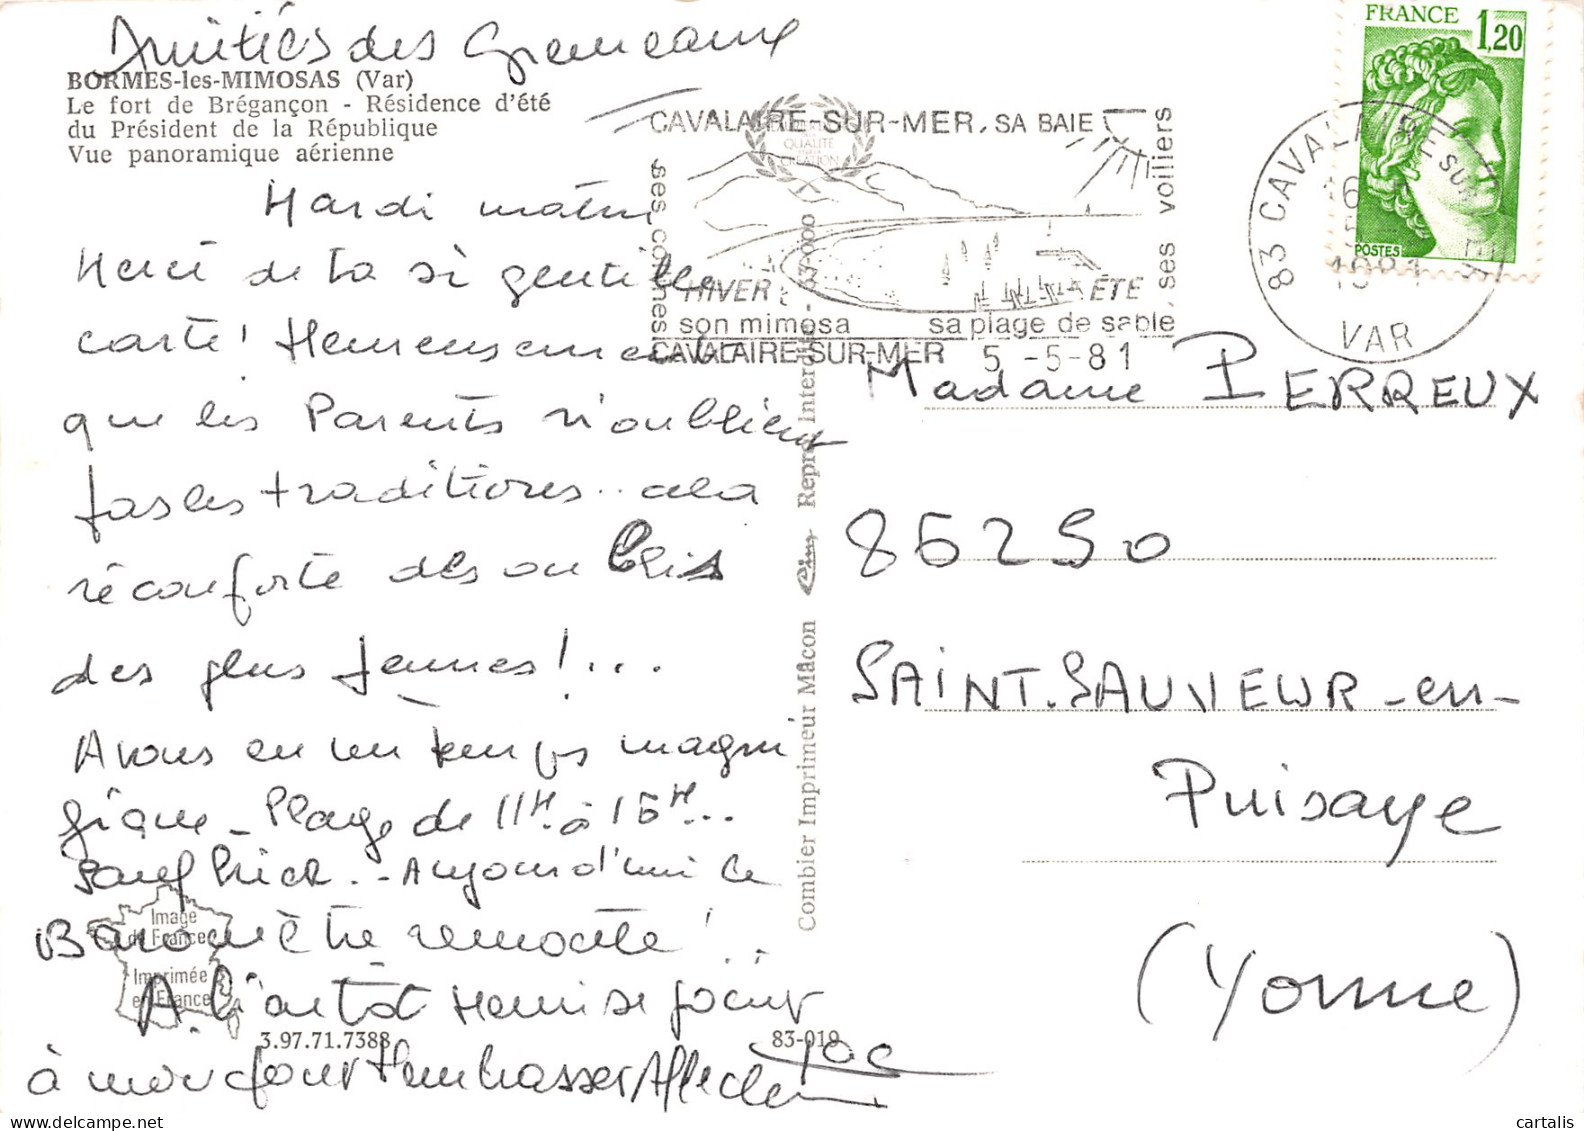 Amitiés des
BORMES-les-MIMOSAS (Var)
Le fort de Brégançon - Résidence d'été
du Président de la République
Vue panoramique aérienne
Mardi matin
Merci de ta si gentille
carte ! Heureusement
que les Parents n'oublient
pas les traditions.. cela
réconforte des oublis
des plus jeunes !...
Avons eu un temps magni
fique - Plage de 11H à 16H...
sauf hier. - Aujourd'hui le
Baromètre remonte !..
A bientôt Henri se joint
à moi pour t'embrasser Affectueusement
Jac
CAVALAIRE-SUR-MER, SA BAIE
ses collines
ses voiliers
QUALITÉ
CRÉATION
HIVER
ÉTÉ
son mimosa
sa plage de sable
CAVALAIRE-SUR-MER 5 -5-81
FRANCE
1,20
POSTES
83 CAVALAIRE SUR MER
1981
VAR
Madame PERREUX
86290
SAINT-SAUVEUR-en-
Puisaye
(Yonne)
Combier Imprimeur Mâcon Cim Repro Interdite - 83-000
Image
de France
Imprimée
en France
3.97.71.7388
83-019
cartalis
www.delcampe.net